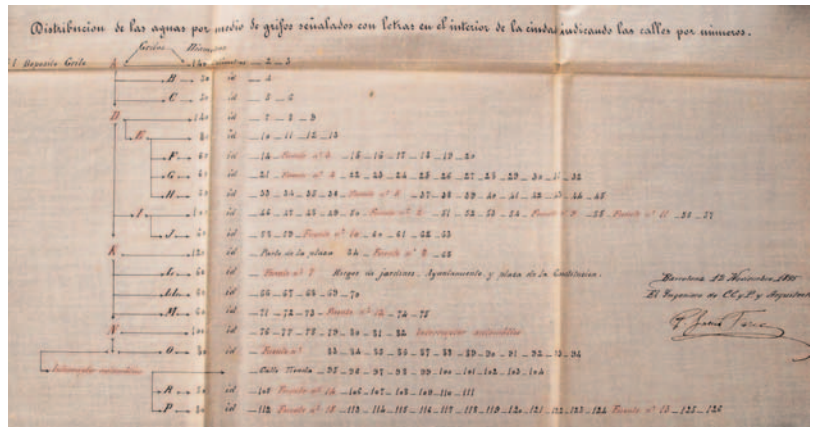 Distribucion de las aguas por medio de grifos señalados con letras en el interior de la ciudad indicando las calles por números.
Grifos
El Deposito Grifo A 140 2 _ 3
B 50 id _ 4
C 50 id _ 5 _ 6
D 140 id _ 7 _ 8 _ 9
E 80 id _ 10 _ 11 _ 12 _ 13
F 60 id _ 14 _ Fuente nº _ 15 _ 16 _ 17 _ 18 _ 19 _ 20
G 60 id _ 21 _ Fuente nº _ 22 _ 23 _ 24 _ 25 _ 26 _ 27 _ 28 _ 29 _ 30 _ 31 _ 32
H 60 id _ 33 _ 34 _ 35 _ 36 _ Fuente nº _ 37 _ 38 _ 39 _ 40 _ 41 _ 42 _ 43 _ 44 _ 45
I 100 id _ 46 _ 47 _ 48 _ 49 _ 50 _ Fuente nº _ 51 _ 52 _ 53 _ 54 _ Fuente nº 9 _ 55 _ Fuente nº 11 _ 56 _ 57
J 60 id _ 58 _ 59 _ Fuente nº 10 _ 60 _ 61 _ 62 _ 63
K 120 id _ Parte de la plaza 64 _ Fuente nº _ 65
L 60 id _ Fuente nº 7 Riegos de jardines _ Ayuntamiento y plaza de la Constitucion.
LL 60 id _ 66 _ 67 _ 68 _ 69 _ 70
M 60 id _ 71 _ 72 _ 73 _ Fuente nº 12 _ 74 _ 75
N 100 id _ 76 _ 77 _ 78 _ 79 _ 80 _ 81 _ 82 Interruptor automático
O 80 id _ Fuente nº 83 _ 84 _ 85 _ 86 _ 87 _ 88 _ 89 _ 90 _ 91 _ 92 _ 93 _ 94
Interruptor automático id _ Calle _ 95 _ 96 _ 97 _ 98 _ 99 _ 100 _ 101 _ 102 _ 103 _ 104
R 50 id _ 105 Fuente nº 14 _ 106 _ 107 _ 108 _ 109 _ 110 _ 111
P 80 id _ 112 Fuente nº 15 _ 113 _ 114 _ 115 _ 116 _ 117 _ 118 _ 119 _ 120 _ 121 _ 122 _ 123 _ 124 Fuente nº 13 _ 125 _ 126
Barcelona 12 Noviembre
El Ingeniero de C. C. y P. y Arquitecto